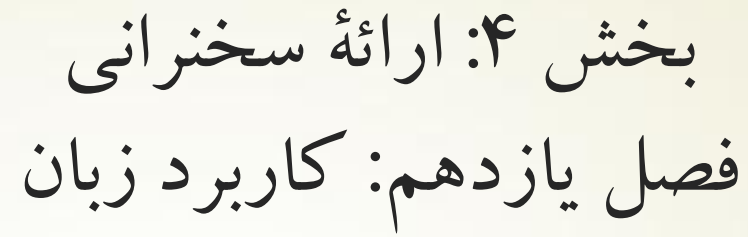 بخش ۴: ارائهٔ سخنرانی
فصل یازدهم: کاربرد زبان